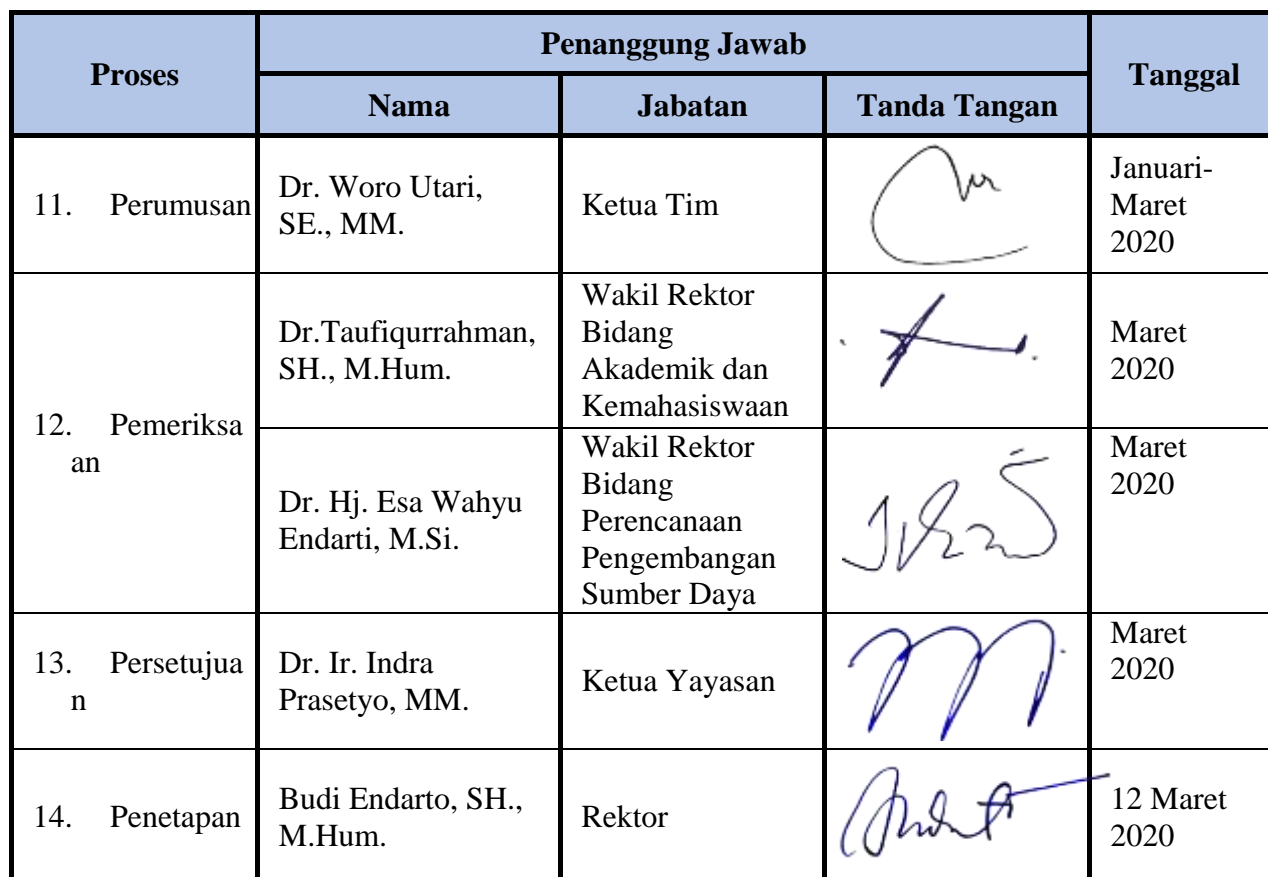 Proses
Penanggung Jawab
Tanggal
Nama
Jabatan
Tanda Tangan
11. Perumusan
Dr. Woro Utari,
SE., MM.
Ketua Tim
Januari-
Maret
2020
12. Pemeriksa
an
Dr.Taufiqurrahman,
SH., M.Hum.
Wakil Rektor
Bidang
Akademik dan
Kemahasiswaan
Maret
2020
Dr. Hj. Esa Wahyu
Endarti, M.Si.
Wakil Rektor
Bidang
Perencanaan
Pengembangan
Sumber Daya
Maret
2020
13. Persetujua
n
Dr. Ir. Indra
Prasetyo, MM.
Ketua Yayasan
Maret
2020
14. Penetapan
Budi Endarto, SH.,
M.Hum.
Rektor
12 Maret
2020